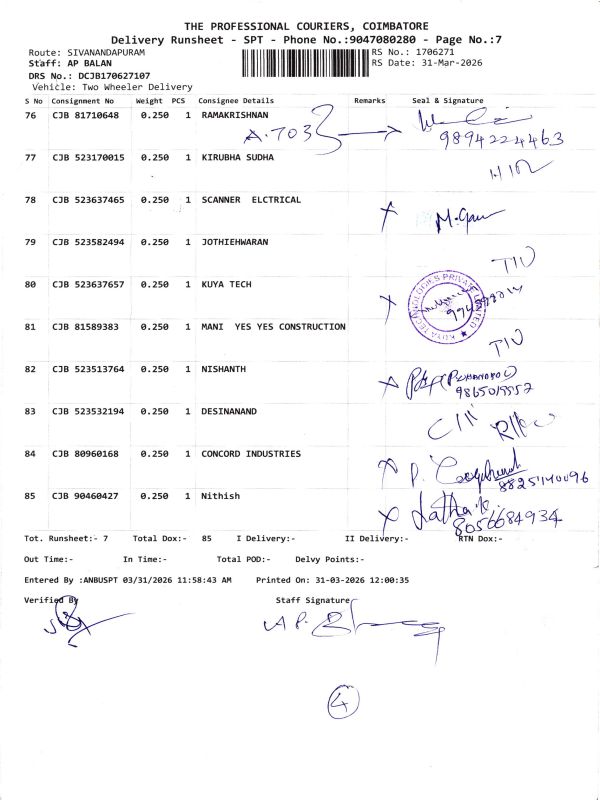 THE PROFESSIONAL COURIERS, COIMBATORE
Delivery Runsheet - SPT - Phone No.:9047080280 - Page No.:7
Route: SIVANANDAPURAM
RS No.: 1706271
Staff: AP BALAN
RS Date: 31-Mar-2026
DRS No.: DCJB170627107
Vehicle: Two Wheeler Delivery
S No Consignment No Weight PCS Consignee Details Remarks Seal & Signature
76 CJB 81710648 0.250 1 RAMAKRISHNAN
A.703
9894224463
77 CJB 523170015 0.250 1 KIRUBHA SUDHA
78 CJB 523637465 0.250 1 SCANNER ELCTRICAL
79 CJB 523582494 0.250 1 JOTHIEHWARAN
80 CJB 523637657 0.250 1 KUYA TECH
KUYA TECHNOLOGIES PRIVATE LIMITED
81 CJB 81589383 0.250 1 MANI YES YES CONSTRUCTION
82 CJB 523513764 0.250 1 NISHANTH
83 CJB 523532194 0.250 1 DESINANAND
84 CJB 80960168 0.250 1 CONCORD INDUSTRIES
85 CJB 90460427 0.250 1 Nithish
8056684934
Tot. Runsheet:- 7 Total Dox:- 85 I Delivery:- II Delivery:- RTN Dox:-
Out Time:- In Time:- Total POD:- Delvy Points:-
Entered By :ANBUSPT 03/31/2026 11:58:43 AM Printed On: 31-03-2026 12:00:35
Verified By Staff Signature
4